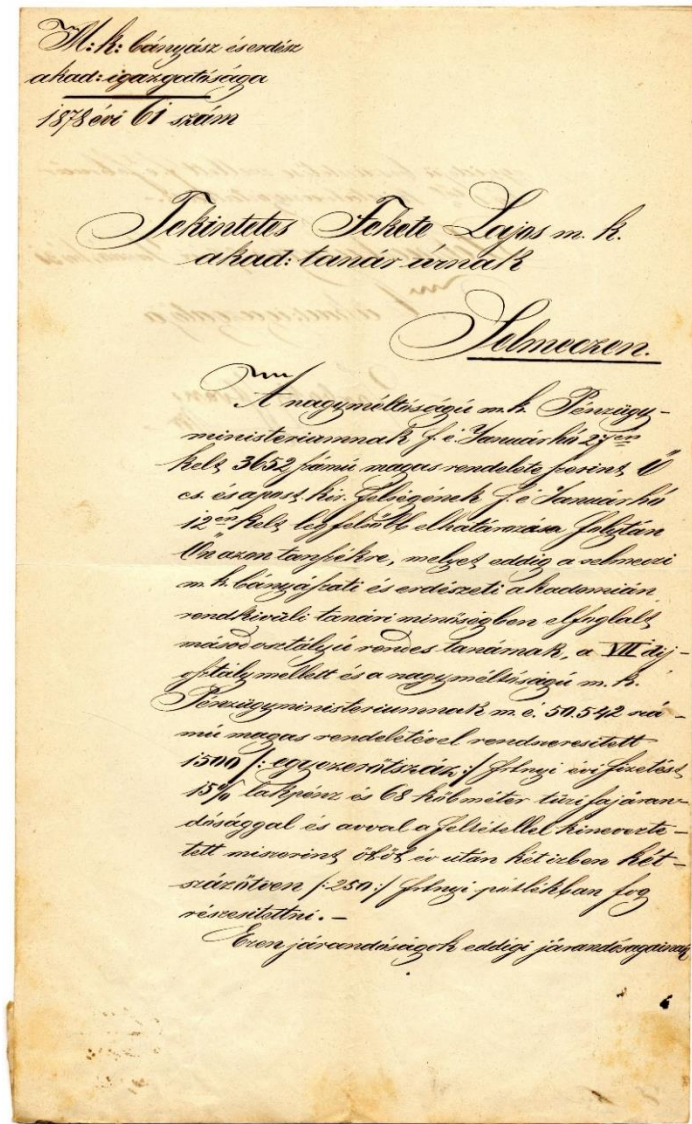 M: k: bányász és erdész
akad: igazgatósága
1878 évi 61 szám
Tekintetes Fekete Lajos m. k.
akad: tanár úrnak
Selmeczen.
A nagyméltóságú m. k. Pénzügy-
ministeriamnak f. é. Január hó 27én
kelt 3652 számú magas rendelete szerint Ő
cs. és apost. kir. felségének f. é. Január hó
12én kelt legfelsőbb elhatározása folytán
Ön azon tanszékre, melyet eddig a selmeczi
m. k. bányászati és erdészeti akademián
rendkivüli tanári minőségben elfoglalt
másodosztályú rendes tanárnak, a VII díj-
osztály mellett és a nagyméltóságú m. k.
Pénzügyministeriumnak m. é. 50.542 szá-
mú magas rendeletével rendszeresitett
1500 /: egyezerötszáz :/ frtnyi évi fizetést
15% lakpénz és 68 köbméter tüzifajáran-
dósággal és avval a feltétellel kinevezte-
tett miszerint öt öt év után két izben két-
százötven /: 250 :/ frtnyi pótlékban fog
részesittetni. –
Ezen járandóságok eddigi járandóságainak